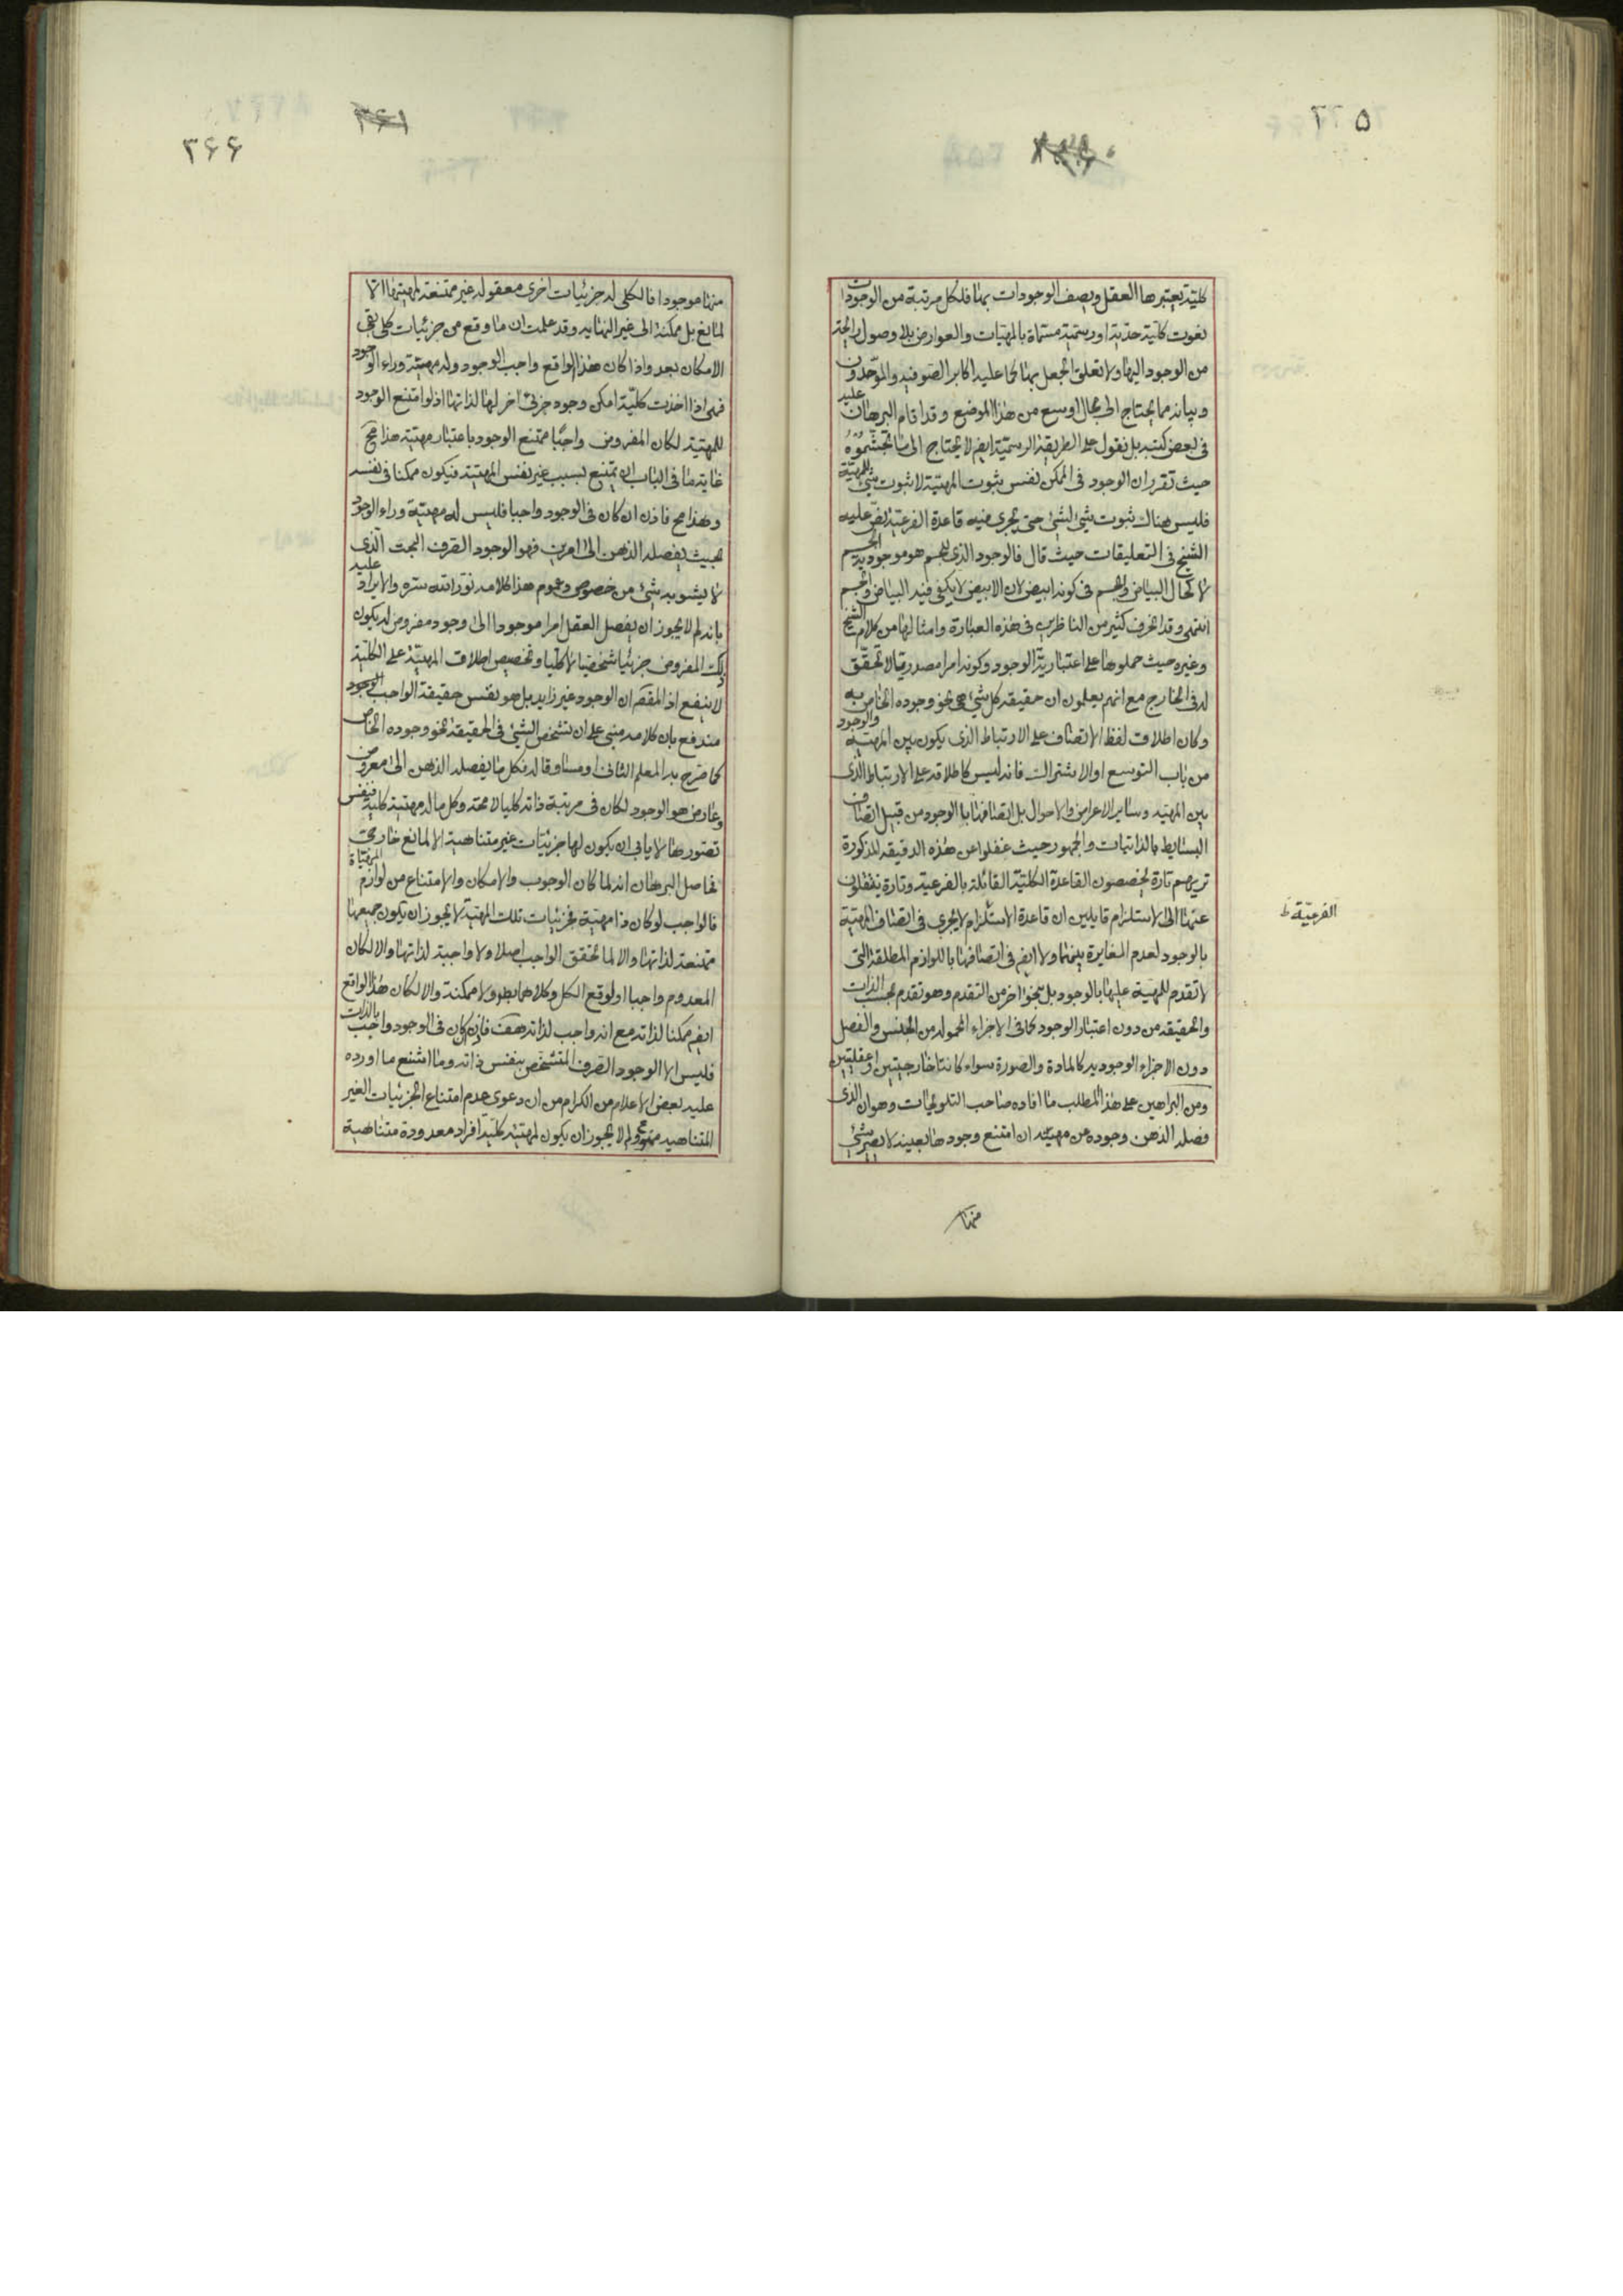 ۵
كلية يعتبرها العقل ويصف الوجودات بها فلكل مرتبة من الوجودات
نعوت كلية حدية او رسمية مسماة بالمهيات والعوارض بلا وصول رايحة
من الوجود اليها ولا تعلق الجعل بها كما عليه اكابر الصوفيه والموحدون
وبيانه مما يحتاج الى مجال اوسع من هذا الموضع وقد اقام البرهان عليه
فى بعض كتبه بل نقول على الطريقة الرسمية ايضا لا يحتاج الى ما تجشموه
حيث تقرر ان الوجود فى الممكن نفس ثبوت المهية لا ثبوت شئ للمهية
فليس هناك ثبوت شئ لشئ حتى يجرى فيه قاعدة الفرعية نص عليه
الشيخ فى التعليقات حيث قال فالوجود الذى للجسم هو موجودية الجسم
لا كحال البياض والجسم فى كونه ابيض لان الابيض لا يكفى فيه البياض والجسم
انتهى وقد انحرف كثير من الناظرين فى هذه العبارة وامثالها من كلام الشيخ
وغيره حيث حملوها على اعتبارية الوجود وكونه امرا مصدريا لا تحقق
له فى الخارج مع انهم يعلمون ان حقيقه كل شئ هى نحو وجوده الخاص به
وكان اطلاق لفظ الاتصاف على الارتباط الذى يكون بين المهية والوجود
من باب التوسع او الاشتراك فانه ليس كاطلاقه على الارتباط الذى
بين المهيه وساير الاعراض والاحوال بل اتصافها بالوجود من قبيل اتصاف
البسايط بالذاتيات والجمهور حيث غفلوا عن هذه الدقيقه المذكورة
تريهم تارة يخصصون القاعدة الكلية القائلة بالفرعية وتارة ينتقلون
عنها الى الاستلزام قايلين ان قاعدة الاستلزام لا يجرى فى اتصاف المهية
الفرعيّة ظ
بالوجود لعدم المغايرة بينهما ولا ايضا فى اتصافها باللوازم المطلقة التى
لا تقدم للمهية عليها بالوجود بل بنحو اخر من التقدم وهو تقدم بحسب الذات
والحقيقه من دون اعتبار الوجود كما فى الاجزاء المحموله من الجنس والفصل
دون الاجزاء الوجوديه كالمادة والصورة سواء كانتا خارجيتين او عقليتين
ومن البراهين على هذا المطلب ما افاده صاحب التلويحات وهو ان الذى
فصله الذهن وجوده عن مهيته ان امتنع وجودها بعينه لا يصير شئ
منها
۳۶۱
۳۶۶
منها موجودا فالكلى له جزئيات اخرى معقوله غير ممتنعة لمهيتها الا
لمانع بل ممكنة الى غير النهايه وقد علمت ان ما وقع من جزئيات كلى بقى
الامكان بعد واذا كان هذا الواقع واجب الوجود وله مهية وراء الوجود
فهى اذا اخذت كلية امكن وجود جزئى اخر لها لذاتها اذ لو امتنع الوجود
للمهية لكان المفروض واجبا ممتنع الوجود باعتبار مهيته هذا مح
غاية ما فى الباب ان يمتنع بسبب غير نفس المهية فيكون ممكنا فى نفسه
وهذا مح فاذن ان كان فى الوجود واجبا فليس له مهية وراء الوجود
بحيث يفصله الذهن الى امرين فهو الوجود الصرف البحت الذى
لا يشوبه شئ من خصوص وعموم هذا كلامه نور الله سره والايراد عليه
بانه لم لا يجوز ان يفصل العقل امرا موجودا الى وجود معروض له يكون
ذلك المفروض جزئيا شخصيا لا كليا وتخصيص اطلاق المهية على الكلية
لا ينفع اذ المقصد ان الوجود غير زايد بل هو نفس حقيقة الواجب الوجود
مندفع بان كلامه مبنى على ان تشخص الشئ فى الحقيقة نحو وجوده الخاص
كما صرح به المعلم الثانى ومساوقا له فكل ما يفصله الذهن الى معروض
وعارض هو الوجود لكان فى مرتبة ذاته كليا لا محة وكل ما له مهية كلية فنفس
تصورها لا يابى ان يكون لها جزئيات غير متناهية الا لمانع خارجى
فحاصل البرهان انه لما كان الوجوب والامكان والامتناع من لوازم المهيّاة
فالواجب لو كان ذا مهية فجزئيات تلك المهية لا يجوز ان يكون جميعها
ممتنعة لذاتها والا لما تحقق الواجب اصلا ولا واجبة لذاتها والا لكان
المعدوم واجبا او لوقع الكل وكلاهما بط ولا ممكنة والا لكان هذا الواقع
ايضا ممكنا لذاته مع انه واجب لذاته هف فاذن ان كان فى الوجود واجب بالذات
فليس الا الوجود الصرف المتشخص بنفس ذاته وما اشنع ما اورده
عليه بعض الاعلام من الكرام من ان دعوى عدم امتناع الجزئيات الغير
المتناهيه ممنوع ولم لا يجوز ان يكون لمهية كلية افراد معدودة متناهية